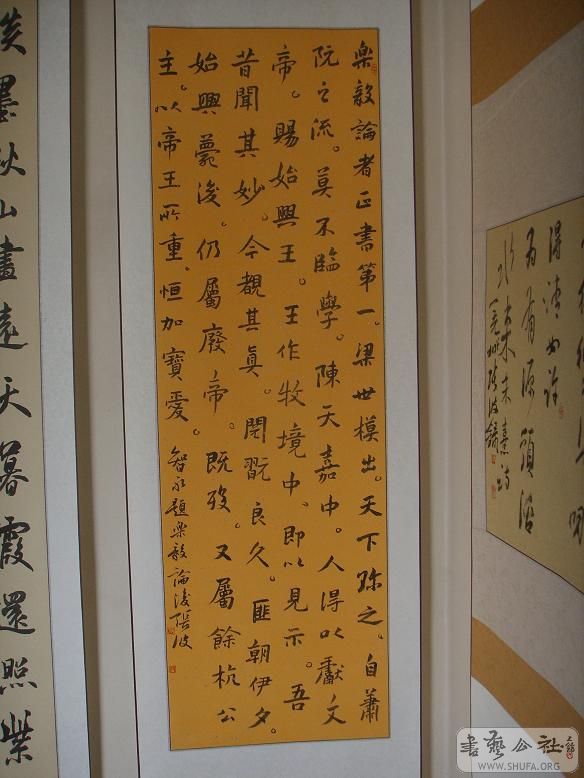 得清如許
為有源頭活
水來朱熹詩
樂毅論者正書第一。梁世模出。天下珎之。自蕭
阮之流。莫不臨學。陳天嘉中。人得以獻文
帝。賜始興王。王作牧境中。即以見示。吾
昔聞其妙。今覩其真。閱翫良久。匪朝伊夕。
始興薨後。仍屬廢帝。既歿。又屬餘杭公
主。以帝王所重。恒加寶愛。智永題樂毅論後張波
淡墨秋山畫遠天暮霞還照紫
書藝公社
WWW.SHUFA.ORG